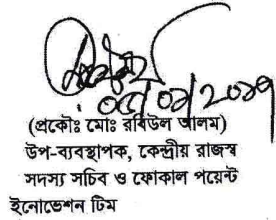 (প্রকৌঃ মোঃ রবিউল আলম)
উপ-ব্যবস্থাপক, কেন্দ্রীয় রাজস্ব
সদস্য সচিব ও ফোকাল পয়েন্ট
ইনোভেশন টিম